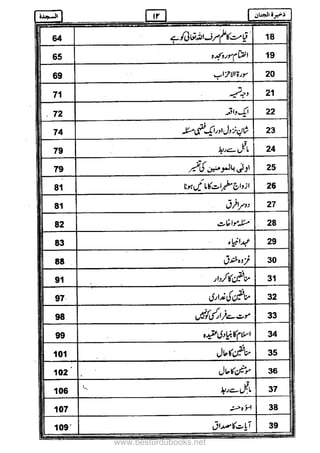 ذخیرۃ الجنان ۱۲ السجدۃ
18 قیامت کا علم صرف اللہ تعالیٰ کو ہے 64
19 اختتام سورہ سجدہ 65
20 سورۃ الاحزاب 69
21 وجہ تسمیہ 71
22 ایک واقعہ 72
23 شان نزول اور ایک فقہی مسئلہ 74
24 ماقبل سے ربط 79
25 اولیٰ بالمومنین کی تفسیر 79
26 ازواج مطہرات کا مائیں ہونا 81
27 دوسرا فرق 81
28 مسئلہ مواخات 82
29 عہد انبیاء 83
30 غزوہ خندق 88
31 منافقین کا کردار 91
32 منافقین کی غداری 97
33 موت سے فرار کسی کو نہیں 98
34 اسلام کا بنیادی عقیدہ 99
35 منافقین کا حال 101
36 مومنین کا حال 102
37 ماقبل سے ربط 106
38 اسوۂ حسنہ 107
39 آیات کا مصداق 109
www.besturdubooks.net